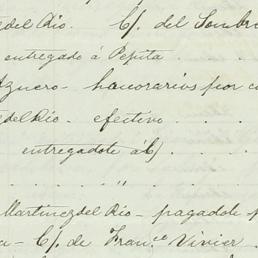 del Rio. C/. del Sombr
entregado á Pepita . .
Aznero - honorarios por c
del Rio - efectivo . . .
entregadole á C/ . . .
. . . . . " . . . .
Martinez del Rio - pagadole p
a - C/. de Fran.co Vivier .